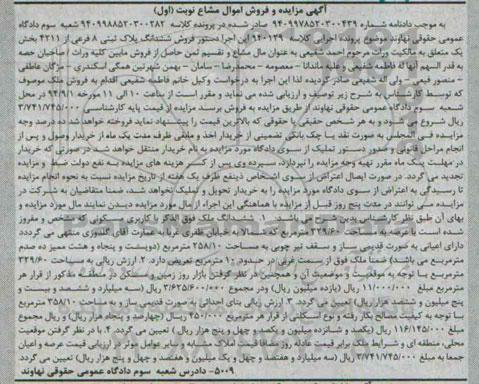 آگهی مزایده و فروش اموال مزایده نوبت (اول)
به موجب دادنامه شماره ۹۴۰۹۹۷۸۵۲۰۳۰۰۴۳۹ صادر شده در پرونده کلاسه ۹۴۰۹۹۸۸۵۲۰۳۰۰۲۸۲ شعبه سوم دادگاه
عمومی حقوقی نهاوند موضوع پرونده اجرایی کلاسه ۹۴۰۱۲۹ این اجرا دستور فروش ششدانگ پلاک ثبتی ۸ فرعی از ۴۲۱۱ بخش
یک متعلق به مالکیت وراث مرحوم احمد شفیعی به عنوان مال مشاع و تقسیم ثمن حاصل از فروش مابین کلیه وراث (صاحبان حصه
به قدر السهم آنها که فاطمه شفیعی و علیه ماندانا - معصومه - محمدرضا - سامان - بهمن شهرتین همگی اسکندری - مژگان عاطفی
- منصور فیعی - ولی اله شفیعی صادر گردیده لذا این اجرا به درخواست وکیل خانم فاطمه شفیعی اقدام به فروش ملک موصوف
که توسط کارشناس به شرح زیر توصیف و ارزیابی شده می نماید و مقرر است از ساعت ۱۰ الی ۱۱ مورخه ۹۴/۹/۱ در محل
شعبه سوم دادگاه عمومی حقوقی نهاوند از طریق مزایده به فروش برسد مزایده از قیمت پایه کارشناسی ۳/۷۴۱/۷۴۵/۰۰۰
ریال شروع می شود و به هر شخص حقیقی یا حقوقی که بالاترین قیمت را پیشنهاد نماید فروخته خواهد شد ده درصد وجه
مزایده فی المجلس به صورت نقد یا چک بانکی تضمینی از خریدار اخذ و مابقی ظرف مدت یک ماه از خریدار وصول و پس از
انجام مراحل قانونی و صدور دستور تملیک از سوی دادگاه مورد مزایده به نام خریدار منتقل خواهد شد در صورتی که خریدار
در مهلت یک ماه مقرر بهیه وجه مزایده را نپردازد سپرده وی پس از کسر هزینه های مزایده به نفع دولت ضبط و مزایده
تجدید می گردد در صورت ایصال اعتراض از سوی اشخاص ذینفع ظرف یک هفته از تاریخ مزایده نسبت به نحوه انجام مزایده
تا رسیدگی به اعتراض از سوی دادگاه مورد مزایده را به خریدار تحویل و تملیک نخواهد شد، ضمنا متقاضیان به شرکت در
مزایده می توانند در مدت پنج روز قبل از مزایده با هماهنگی این اجراء از مال مورد مزایده دیدن نمایند مال مورد مزایده و
بهای آن طبق نظر کارشناس بدین شرح می باشد. ۱. ششدانگ ملک فوق الذکر با کاربری مسکونی که مشخص و مفروز
شده است با عرصه به مساحت ۳۲۹/۶۰ مترمربع که شمالا به خیابان هفتری ارتا به عمارت آقای گلنوری منتهی می گردد
دارای اعیانی به صورت قدیمی ساز و سقف تیر چوبی به مساحت ۲۵۸/۱۰ مترمربع (دویست و پنجاه و هشت ممیز ده صدم
مترمربع می باشد) ضمنا ملک فوق از سمت غربی در حدود ۱۰ مترمربع تعریض دارد. ۲. ارزش ریالی به مساحت ۳۲۹/۶۰
مترمربع با توجه به موقعیت و وضعیت آن و همچنین در نظر گرفتن بازار روز زمین و مسکن در منطقه مذکور از قرار هر
مترمربع مبلغ ۱۱/۰۰۰/۰۰۰ ریال (یازده میلیون ریال) و در مجموع ۳/۶۲۵/۶۰۰/۰۰۰ ریال (سه میلیارد و ششصد و بیست و
پنج میلیون و ششصد هزار ریال) تعیین می گردد. ۳. ارزش ریالی بنای احداثی به صورت قدیمی ساز و به مساحت ۲۵۸/۱۰ مترمربع
با توجه به کیفیت مصالح بکار رفته و نوع اسکلتی از قرار هر مترمربع ۴۵۰/۰۰۰ ریال (چهارصد و پنجاه هزار ریال) و ریال مجموع
مبلغ ۱۱۶/۱۴۵/۰۰۰ ریال (یکصد و شانزده میلیون و یکصد و چهل و پنج هزار ریال) تعیین می گردد. ۴. با در نظر گرفتن موقعیت
محلی، منطقه ای و شرایط ملک برابر قیمت عادله روز مضافا قیمت املاک مشابه و سایر عوامل موثر در ارزیابی قیمت عرصه و اعیان
جمعا به مبلغ ۳/۷۴۱/۷۴۵/۰۰۰ ریال (سه میلیارد و هفتصد و چهل و یک میلیون و هفتصد و چهل و پنج هزار ریال) تعیین می گردد.
۵۰۰۹- دادرس شعبه سوم دادگاه عمومی حقوقی نهاوند